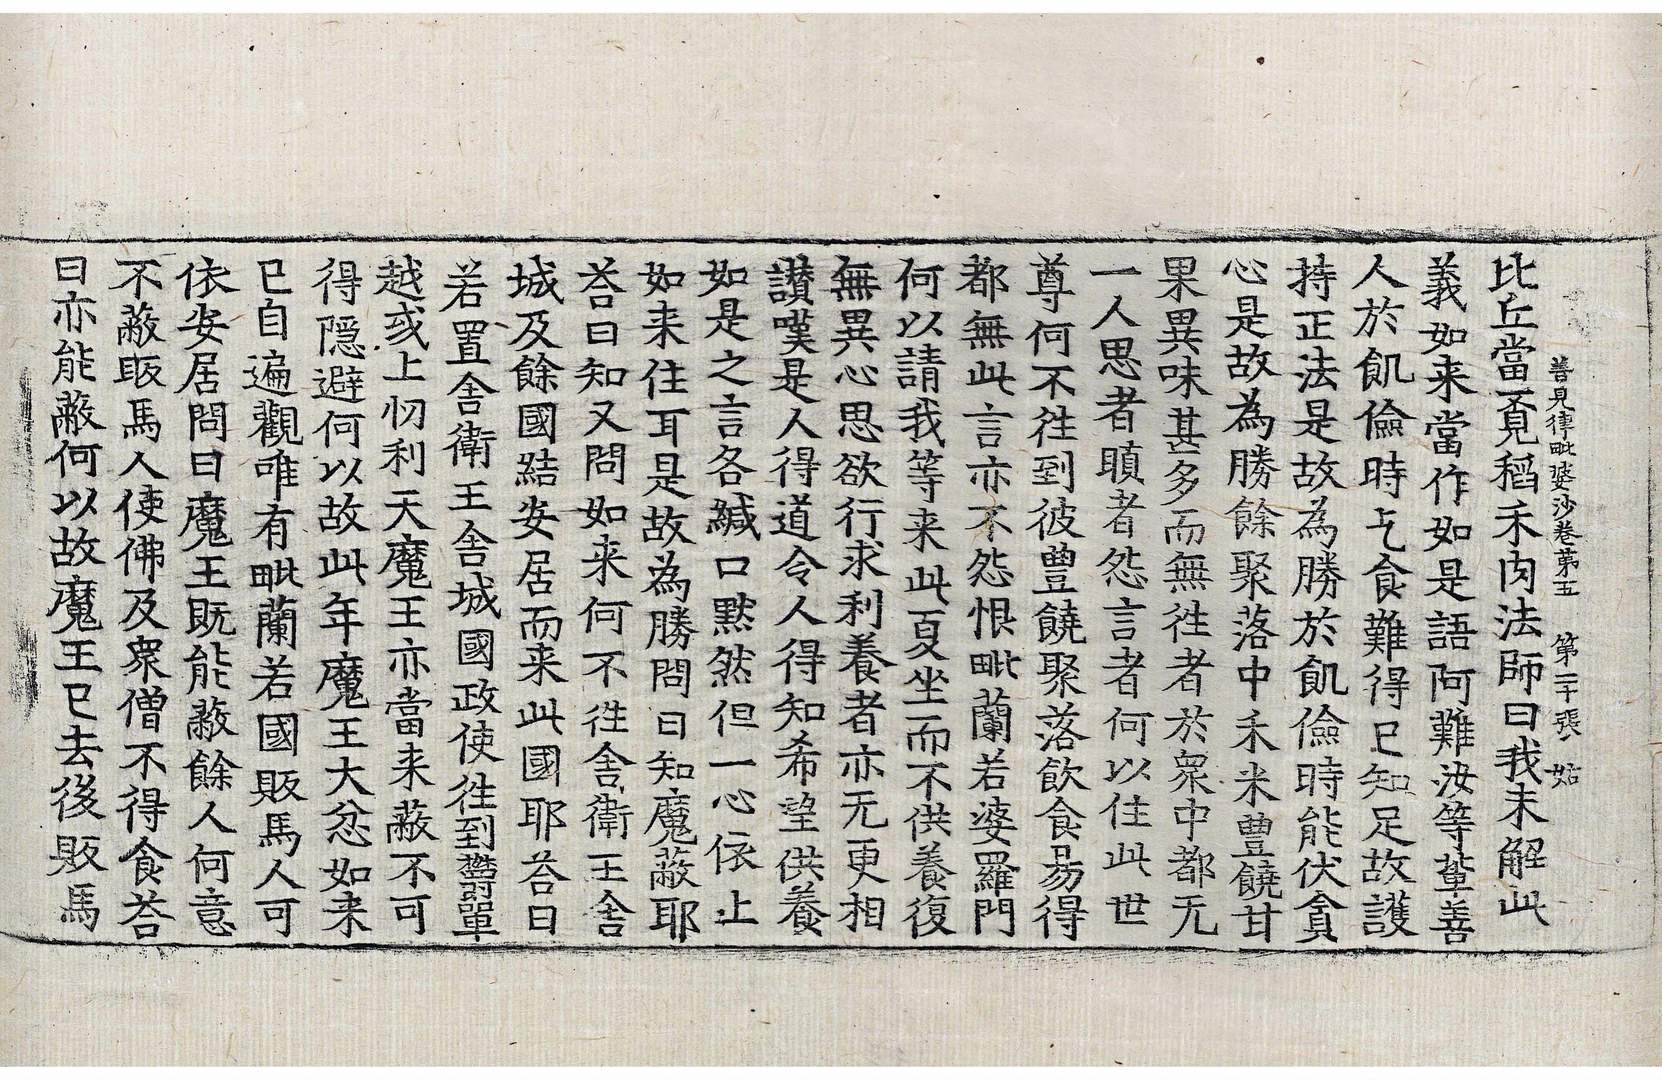 善見律毗婆沙卷第五 第二十張 姑
比丘當覓稻禾肉法師曰我未解此
義如来當作如是語阿難汝等軰善
人於飢儉時乞食難得已知足故護
持正法是故為勝於飢儉時能伏貪
心是故為勝餘聚落中禾米豊饒甘
果異味甚多而無徃者於衆中都无
一人思者瞋者怨言者何以住此世
尊何不徃到彼豊饒聚落飲食易得
都無此言亦不怨恨毗蘭若婆羅門
何以請我等来此夏坐而不供養復
無異心思欲行求利養者亦无更相
讃嘆是人得道令人得知希望供養
如是之言各緘口黙然但一心依止
如来住耳是故為勝問曰知魔蔽耶
荅曰知又問如来何不徃舎衛王舎
城及餘國結安居而来此國耶荅曰
若置舎衛王舎城國政使徃到欝單
越或上忉利天魔王亦當来蔽不可
得隱避何以故此年魔王大忿如来
已自遍觀唯有毗蘭若國販馬人可
依安居問曰魔王既能蔽餘人何意
不蔽販馬人使佛及衆僧不得食荅
曰亦能蔽何以故魔王已去後販馬